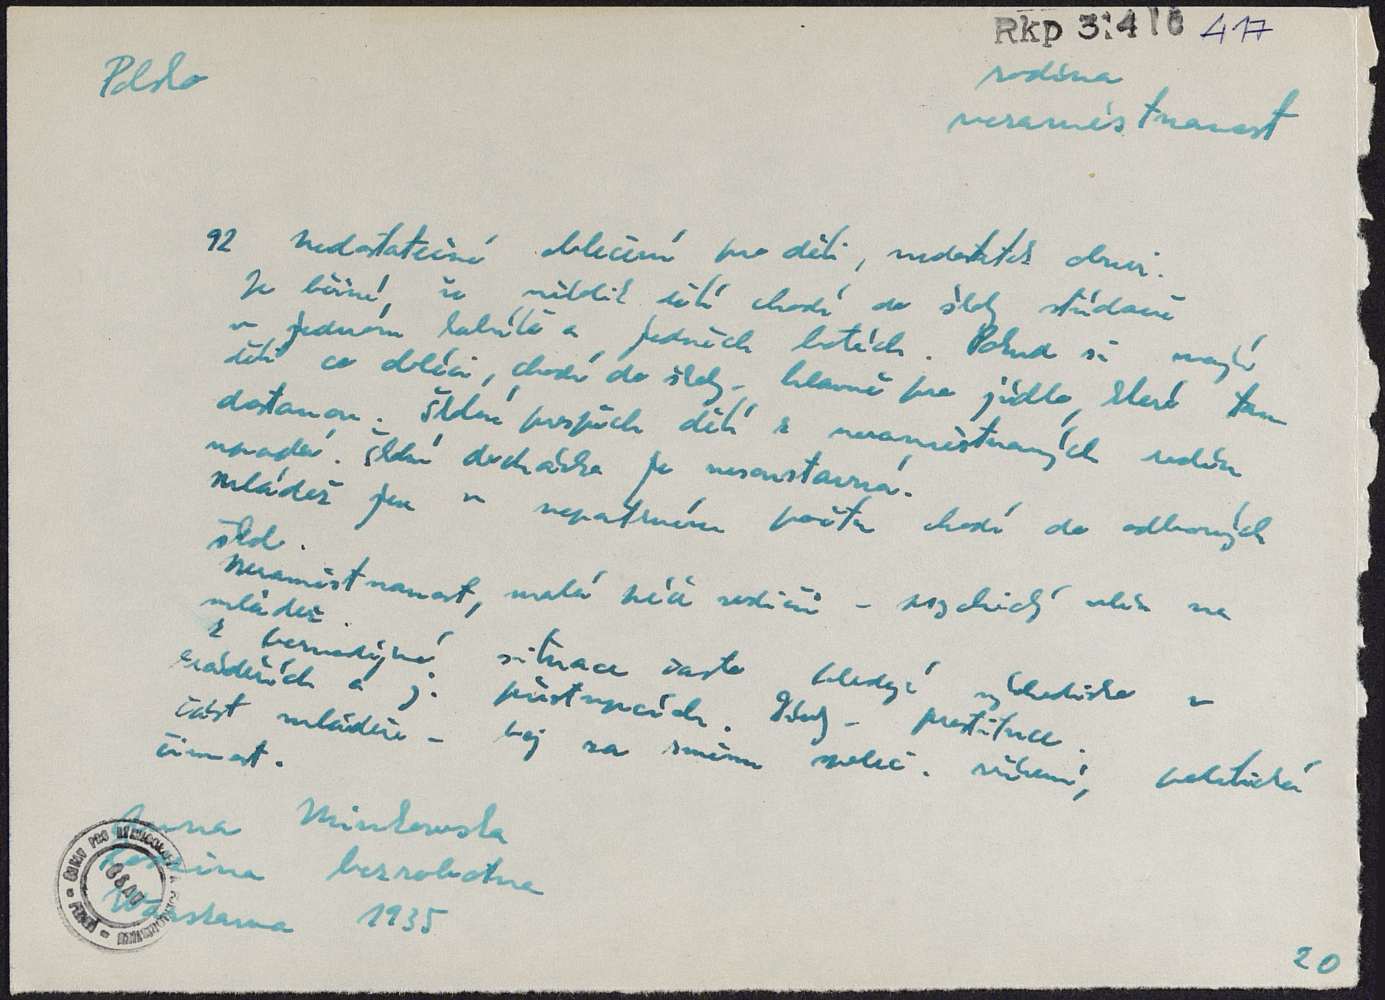 Rkp 3:416 417
Polsko
rodina
nezaměstnanost
92 nedostatečné oblečení pro děti, nedostatek obuvi.
Je běžné, že několik dětí chodí do školy střídavě
v jednom kabátě a jedněch botách. Pokud si mají
děti co obléci, chodí do školy - hlavně pro jídlo, které tam
dostanou. Školní prospěch dětí z nezaměstnaných rodin
upadá. Školní docházka je nesoustavná.
Mládež jen v nepatrném počtu chodí do odborných
škol.
Nezaměstnanost, malá péče rodičů - psychický vliv na
mládež.
Z beznadějné situace často hledají východisko v
krádežích a j. přestupcích. Dívky - prostituce.
část mládeže - boj za změnu společ. zřízení, politická
činnost.
Anna Minkowska
rodzina bezrobotna
Warszawa 1935
20